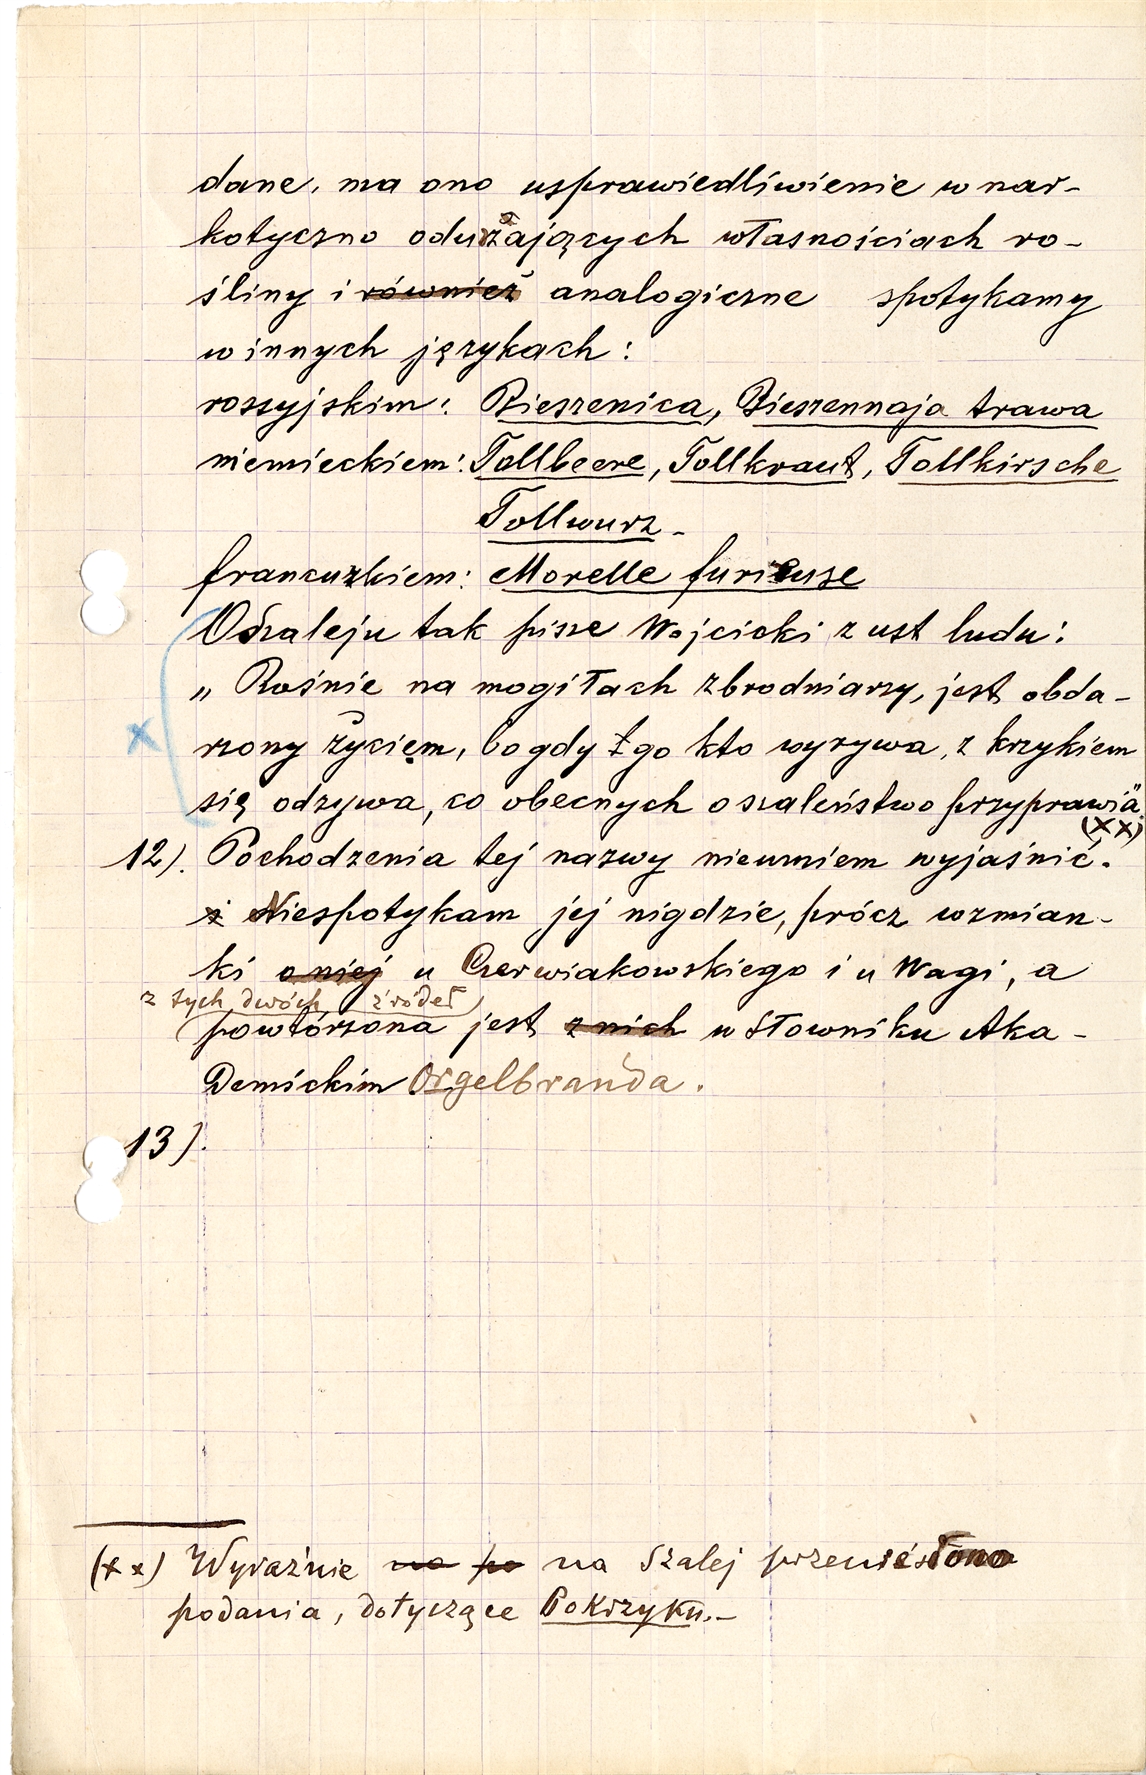 dane, ma ono usprawiedliwienie w nar-
kotyczno odurzających własnościach ro-
śliny i również analogiczne spotykamy
w innych językach:
rossyjskim: Bieszenica, Bieszennaja trawa
niemieckiem: Tollbeere, Tollkraut, Tollkirsche
Tollwurz.
francuzkiem: Morelle furieuse
O Szaleju tak pisze Wojcicki z ust ludu:
„Rośnie na mogiłach zbrodniarzy, jest obda-
rzony życiem, bo gdy go kto wyrywa, z krzykiem
się odzywa, co obecnych o szaleństwo przyprawia"
(xx)
12). Pochodzenia tej nazwy nieumiem wyjaśnić.
Niespotykam jej nigdzie, prócz wzmian-
ki o niej u Czerwiakowskiego i u Wagi, a
z tych dwóch źródeł
powtórzona jest z nich w Słowniku Aka-
Demickim Orgelbranda.
13).
(xx) Wyraźnie na po na Szalej przeniesiono
podania, dotyczące Pokrzyku.-